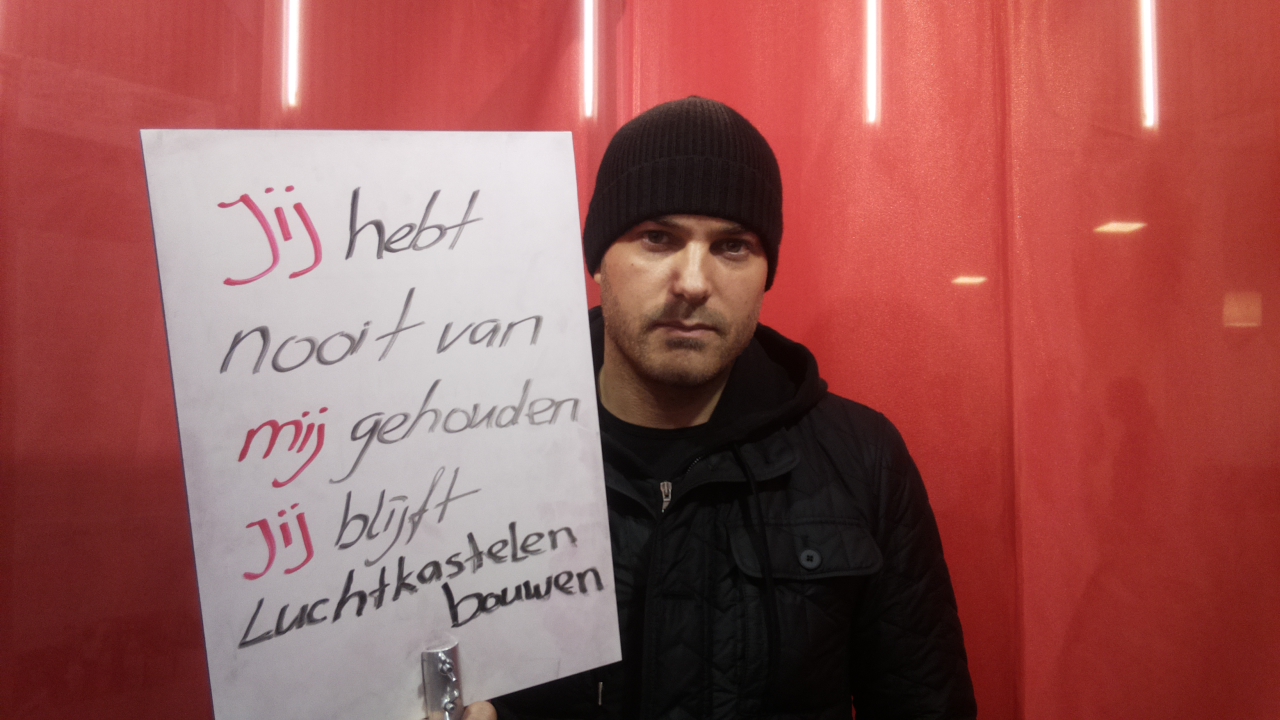 Jij hebt
nooit van
mij gehouden
Jij blijft
Luchtkastelen
bouwen